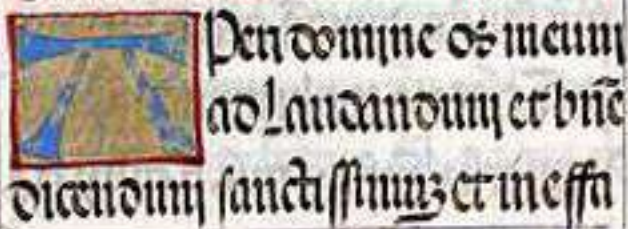 APeri domine os meum
ad Laudandum et bn̄e
dicendum sanctissimuz et ineffa